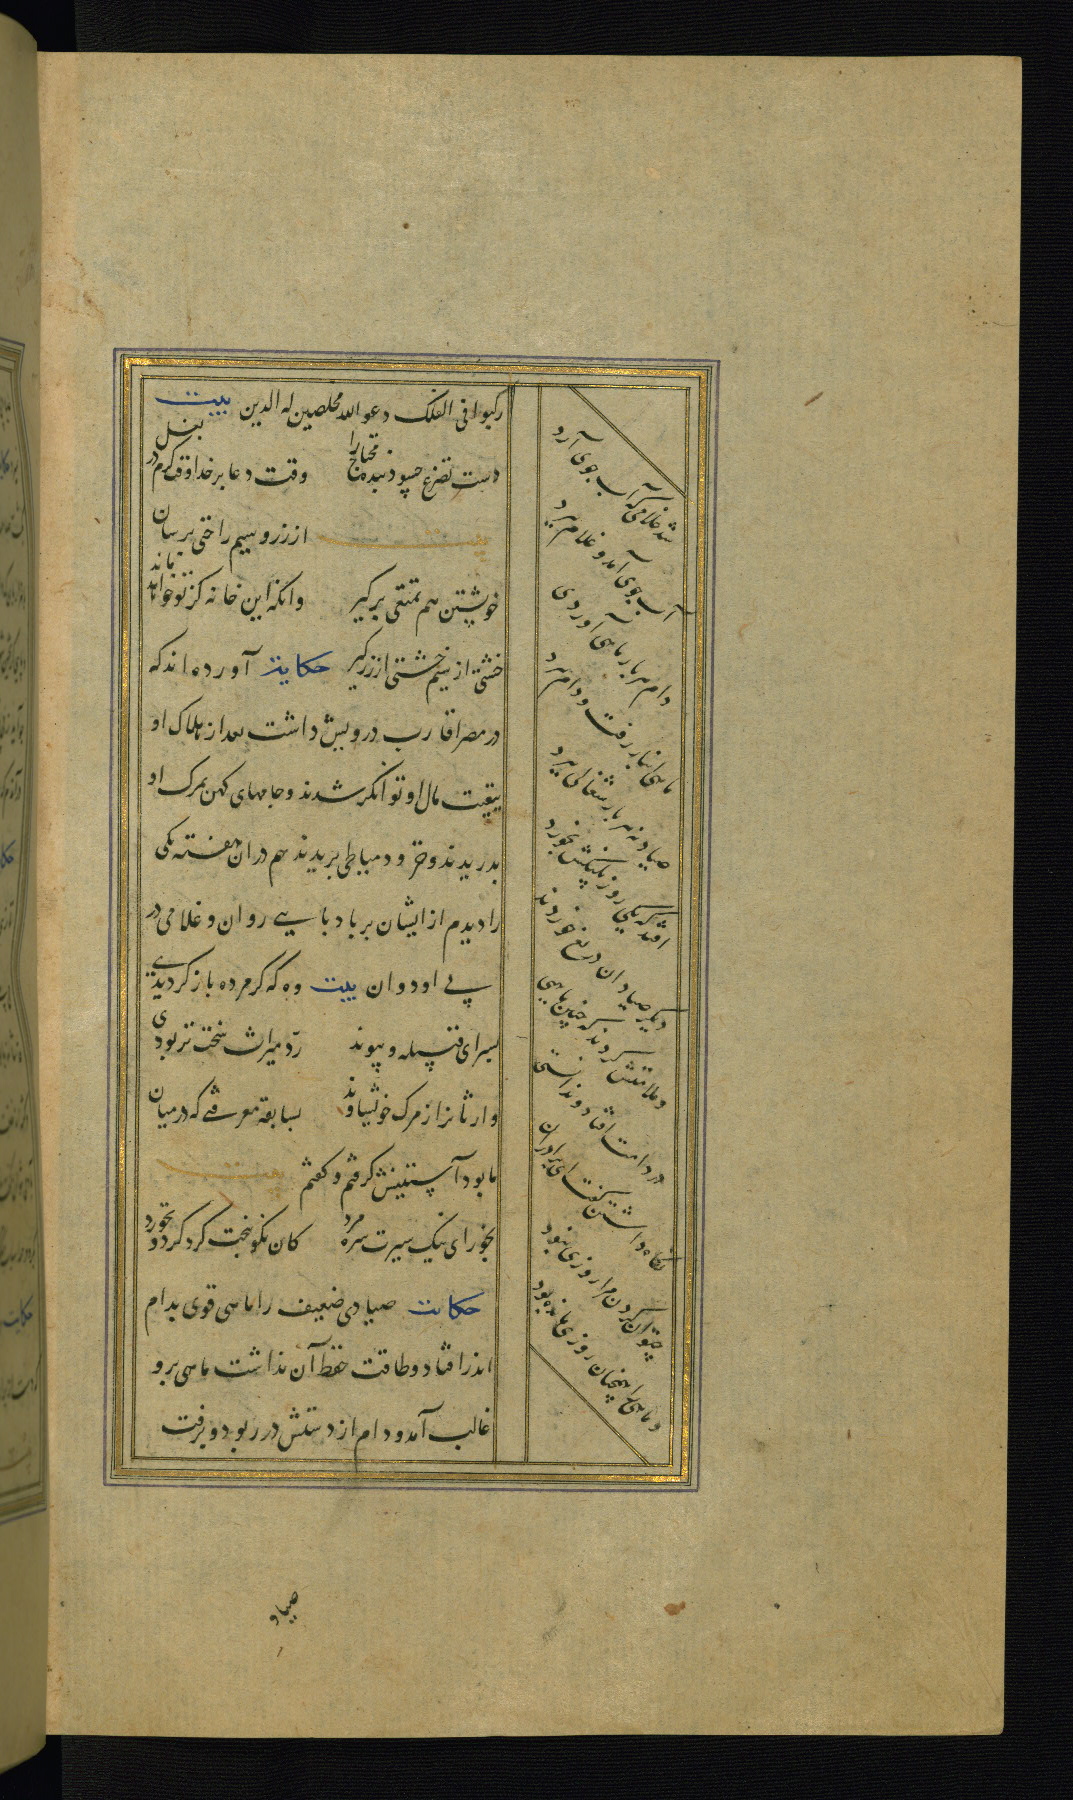 رکبوا فی الفلک دعوا الله مخلصین له الدین بیت
دست تضرع چه سود بنده محتاج را وقت دعا بر خدا وقت کرم در بغل
از زر و سیم راحتی برسان
خویشتن هم تمتعی برگیر وانگه این خانه کز تو خواهد ماند
خشتی از سیم خشتی از زر گیر حکایت آورده اند که
در مصر اقارب درویش داشت بعد از هلاک او
ببقیت مال او توانگر شدند و جامهای کهن بمرک او
بدریدند و خز و دمیاطی بریدند هم در ان هفته یکی
را دیدم از ایشان بر باد پایی روان و غلامی در
پی او دوان بیت وه که گر مرده باز گردیدی
بسرای قبیله و پیوند رد میراث سخت تر بودی
وارثانرا ز مرک خویشاوند بسابقه معرفتی که در میان
ما بود آستینش گرفتم و گفتم
بخور ای نیک سیرت سره مرد کان نگون بخت گرد کرد و نخورد
حکایت صیادی ضعیف را ماهی قوی بدام
اندر افتاد و طاقت حفظ آن نداشت ماهی برو
غالب آمد و دام از دستش در ربود و برفت
شد غلامی که آب جوی آرد
آب جوی آمد و غلام ببرد
دام هر بار ماهی آوردی
ماهی اینبار رفت و دام ببرد
صیاد نه هر بار شغالی ببرد
افتد که یکی روز پلنگش بخورد
دیگر صیادان دریغ خوردند
و ملامتش کردند که چنین ماهی
در دامت افتاد و ندانستی
نگاه داشتن گفت ای برادران
چتوان کردن مرا روزی نبود
و ماهی را همچنان روزی مانده بود
صیاد